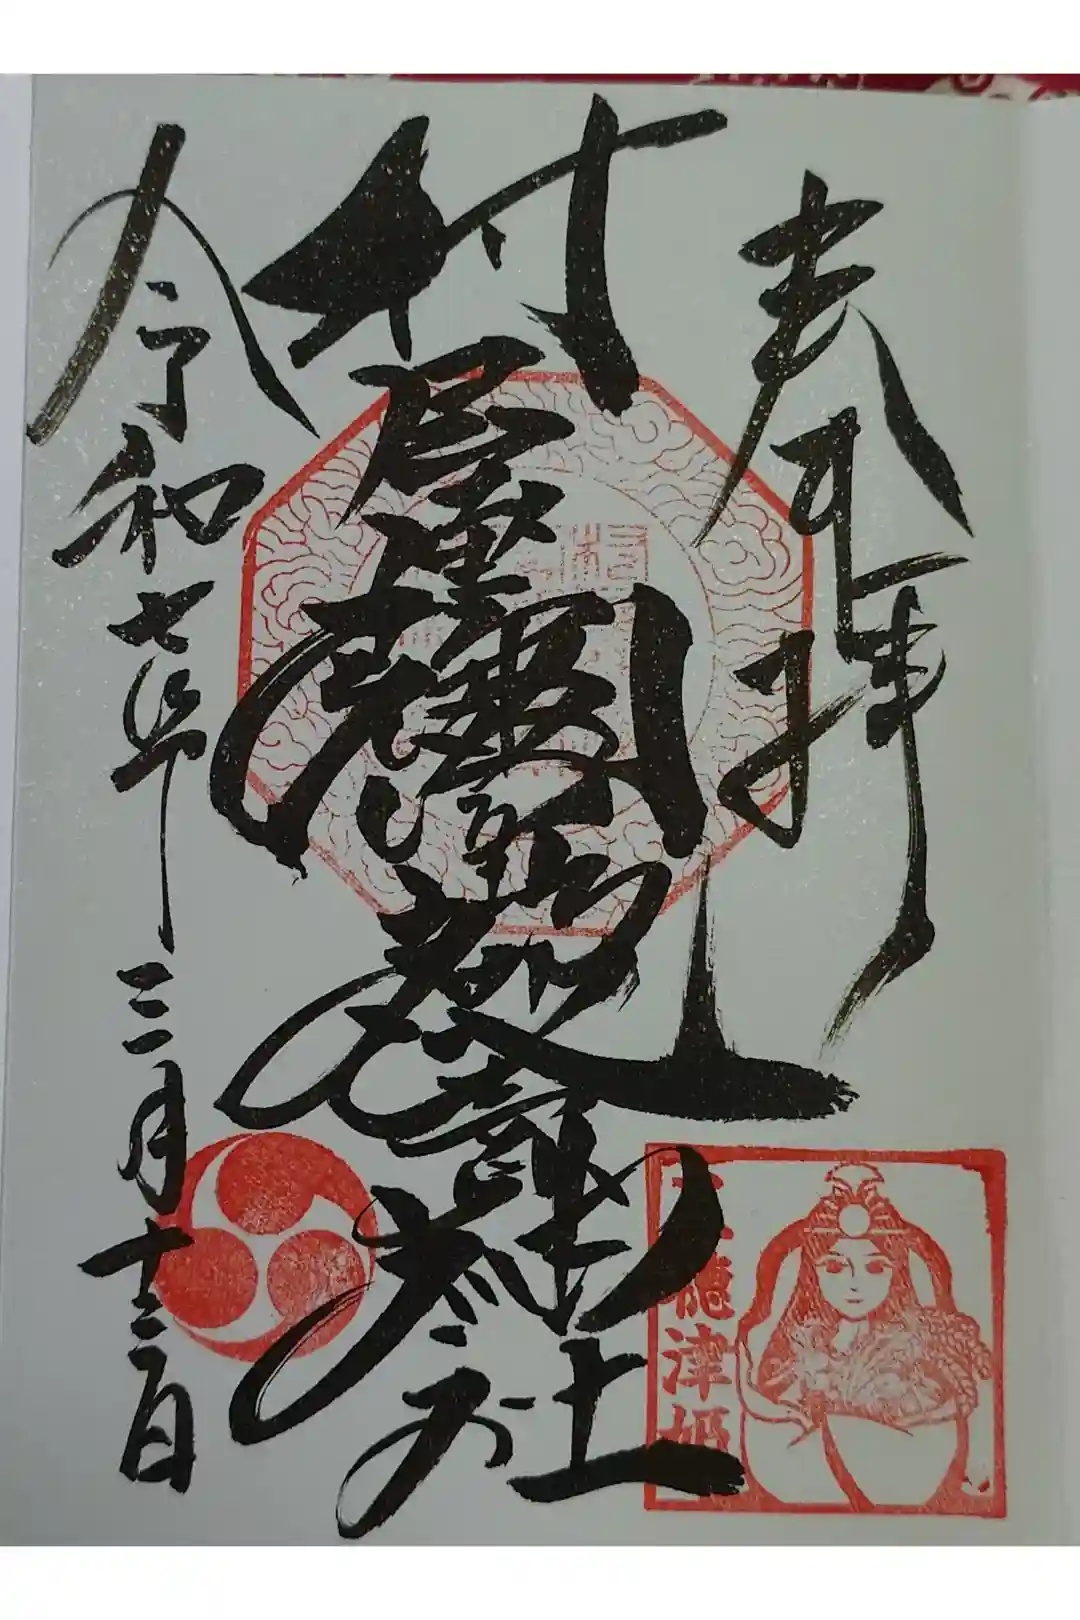 奉拝
村屋坐彌冨都比賣神社
令和七年三月十三日
三穂津姫